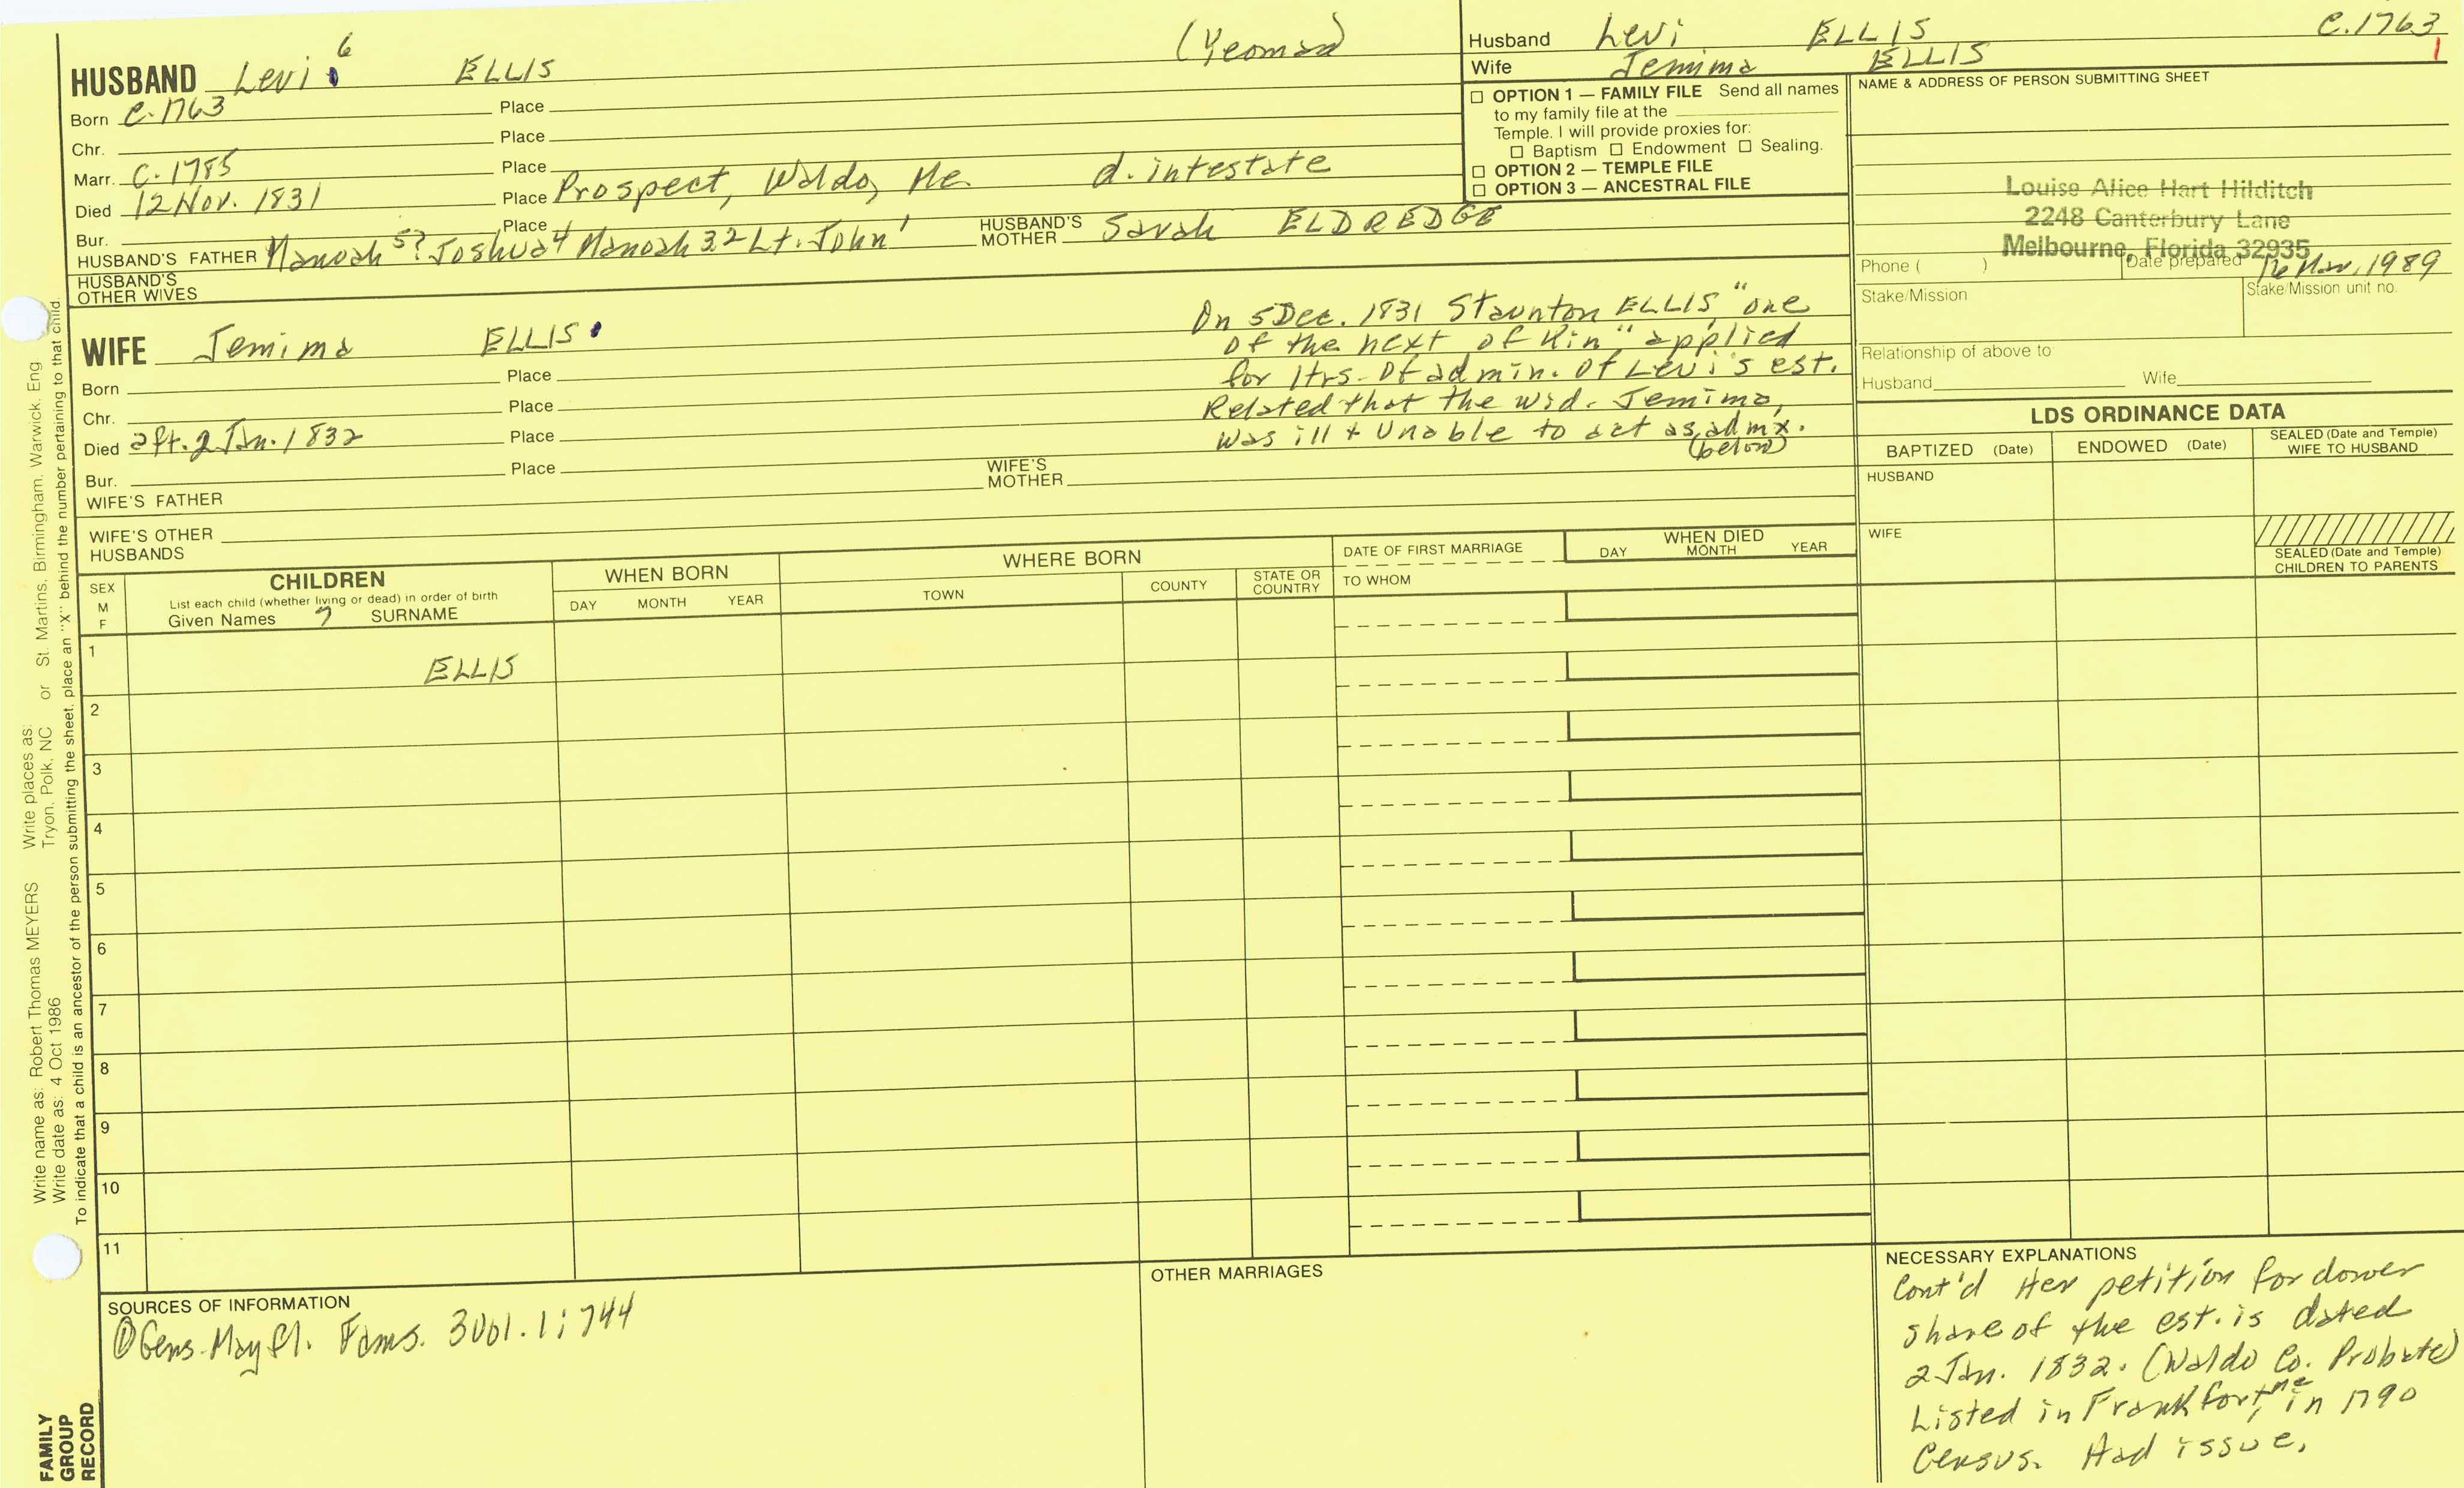 HUSBAND Levi 6 ELLIS (Yeoman)
Born C. 1763 Place
Chr. Place
Marr. C. 1785 Place
Died 12 Nov. 1831 Place Prospect, Waldo, Me. d. intestate
Bur. Place
HUSBAND'S FATHER Manoah 5? Joshua 4 Manoah 3. 2 Lt. John 1 HUSBAND'S MOTHER Sarah ELDREDGE
HUSBAND'S OTHER WIVES
WIFE Jemima ELLIS
Born Place
Chr. Place
Died aft. 2 Jan. 1832 Place
Bur. Place
WIFE'S FATHER WIFE'S MOTHER
WIFE'S OTHER HUSBANDS
On 5 Dec. 1831 Staunton ELLIS, "one
of the next of kin" applied
for ltrs. of admin. of Levi's est.
Related that the wid. Jemima,
was ill + unable to act as admx.
(below)
Husband Levi ELLIS C. 1763
Wife Jemima ELLIS 1
OPTION 1 — FAMILY FILE Send all names
to my family file at the
Temple. I will provide proxies for:
Baptism Endowment Sealing.
OPTION 2 — TEMPLE FILE
OPTION 3 — ANCESTRAL FILE
NAME & ADDRESS OF PERSON SUBMITTING SHEET
Louise Alice Hart Hilditch
2248 Canterbury Lane
Melbourne, Florida 32935
Phone ( ) Date prepared 12 Mar. 1989
Stake/Mission Stake/Mission unit no.
Relationship of above to
Husband Wife
LDS ORDINANCE DATA
BAPTIZED (Date) ENDOWED (Date) SEALED (Date and Temple) WIFE TO HUSBAND
HUSBAND
WIFE
SEALED (Date and Temple)
CHILDREN TO PARENTS
SEX
M
F
CHILDREN
List each child (whether living or dead) in order of birth
Given Names ? SURNAME
WHEN BORN
DAY MONTH YEAR
WHERE BORN
TOWN COUNTY STATE OR COUNTRY
DATE OF FIRST MARRIAGE
TO WHOM
WHEN DIED
DAY MONTH YEAR
1 ELLIS
2
3
4
5
6
7
8
9
10
11
SOURCES OF INFORMATION
① Gens. Mayfl. Fams. 3 Vol. 1: 744
OTHER MARRIAGES
NECESSARY EXPLANATIONS
Cont'd Her petition for dower
share of the est. is dated
2 Jan. 1832. (Waldo Co. Probate)
Listed in Frankfort, Me in 1790
Census. Had issue.
Write name as: Robert Thomas MEYERS Write places as: Tryon, Polk, NC or St. Martins, Birmingham, Warwick, Eng
Write date as: 4 Oct 1986
To indicate that a child is an ancestor of the person submitting the sheet, place an "X" behind the number pertaining to that child
FAMILY
GROUP
RECORD